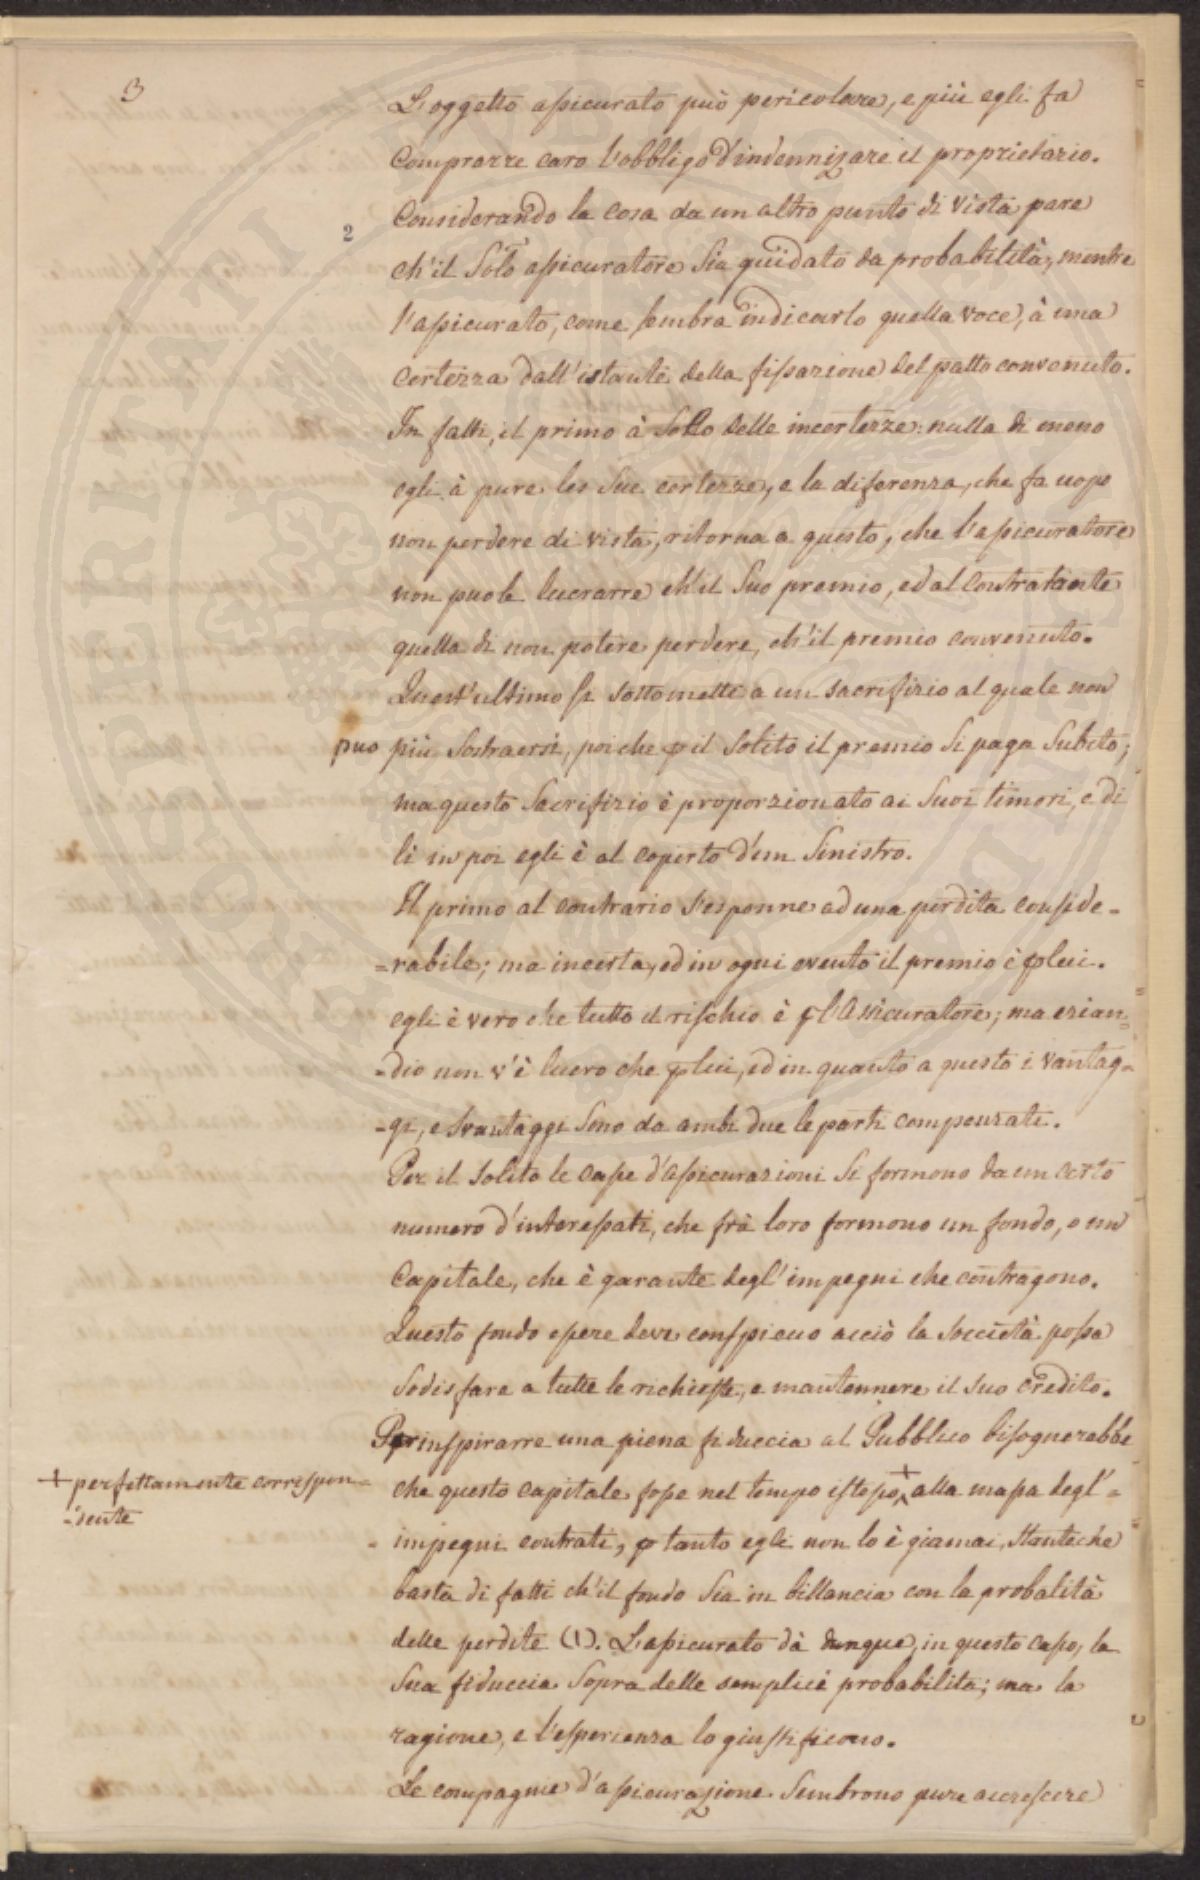 3
L'oggetto assicurato può pericolare, e più egli fa
Comprarre caro l'obbligo d'indennizare il proprietario.
Considerando la cosa da un altro punto di vista pare
2
ch'il Solo assicuratore Sia guidato da probabilità, mentre
l'assicurato, come sembra indicarlo quella voce, à una
certezza dall'istante della fissazione del patto convenuto.
In fatti, il primo à Sollo delle incertezze: nulla di meno
egli à pure les Sue certezze, e la diferenza, che fa uopo
non perdere di vista, ritorna a questo, che l'assicuratore
non puole lucrarre ch'il Suo premio, ed al Contratante
quella di non potere perdere, ch'il premio convenuto.
Quest'ultimo si sottomette a un sacrifizio al quale non
puo più Sostraersi, poiche p il Solito il premio Si paga Subito;
ma questo Sacrifizio è proporzionato ai Suoi timori, e di
lì in poi egli è al coperto d'un Sinistro.
Il primo al contrario s'esponne ad una perdita conside-
=rabile; ma incerta, ed in ogni evento il premio è p lui.
egli è vero che tutto il rischio è p l'Assicuratore; ma ezian=
=dio non v'è lucro che p lui, ed in quanto a questo i vantag=
=gi, e svantaggi Sono da ambi due le parti compensati.
Per il Solito le casse d'assicurazioni Si formono da un certo
numero d'interessati, che frà loro formono un fondo, o un
Capitale, che è garante degl'impegni che contragono.
Questo fondo essere deve conspicuo acciò la Soccietà possa
Sodisfare a tutte le richieste, e mantennere il Suo credito.
Per inspirarre una piena fiduccia al Pubblico bisognerebbe
che questo capitale fosse nel tempo istesso + alla massa degl'=
+ perfettamente correspon=
=dente
= impegni contrati, p tanto egli non lo è giamai, stanteche
basta di fatti ch'il fondo Sia in billancia con la probalità
delle perdite (1). L'assicurato dà dunque, in questo caso, la
Sua fiduccia Sopra delle semplici probabilita; ma la
ragione, e l'esperienza lo giustificono.
Le compagnie d'assicurazione Sembrono pure accrescere